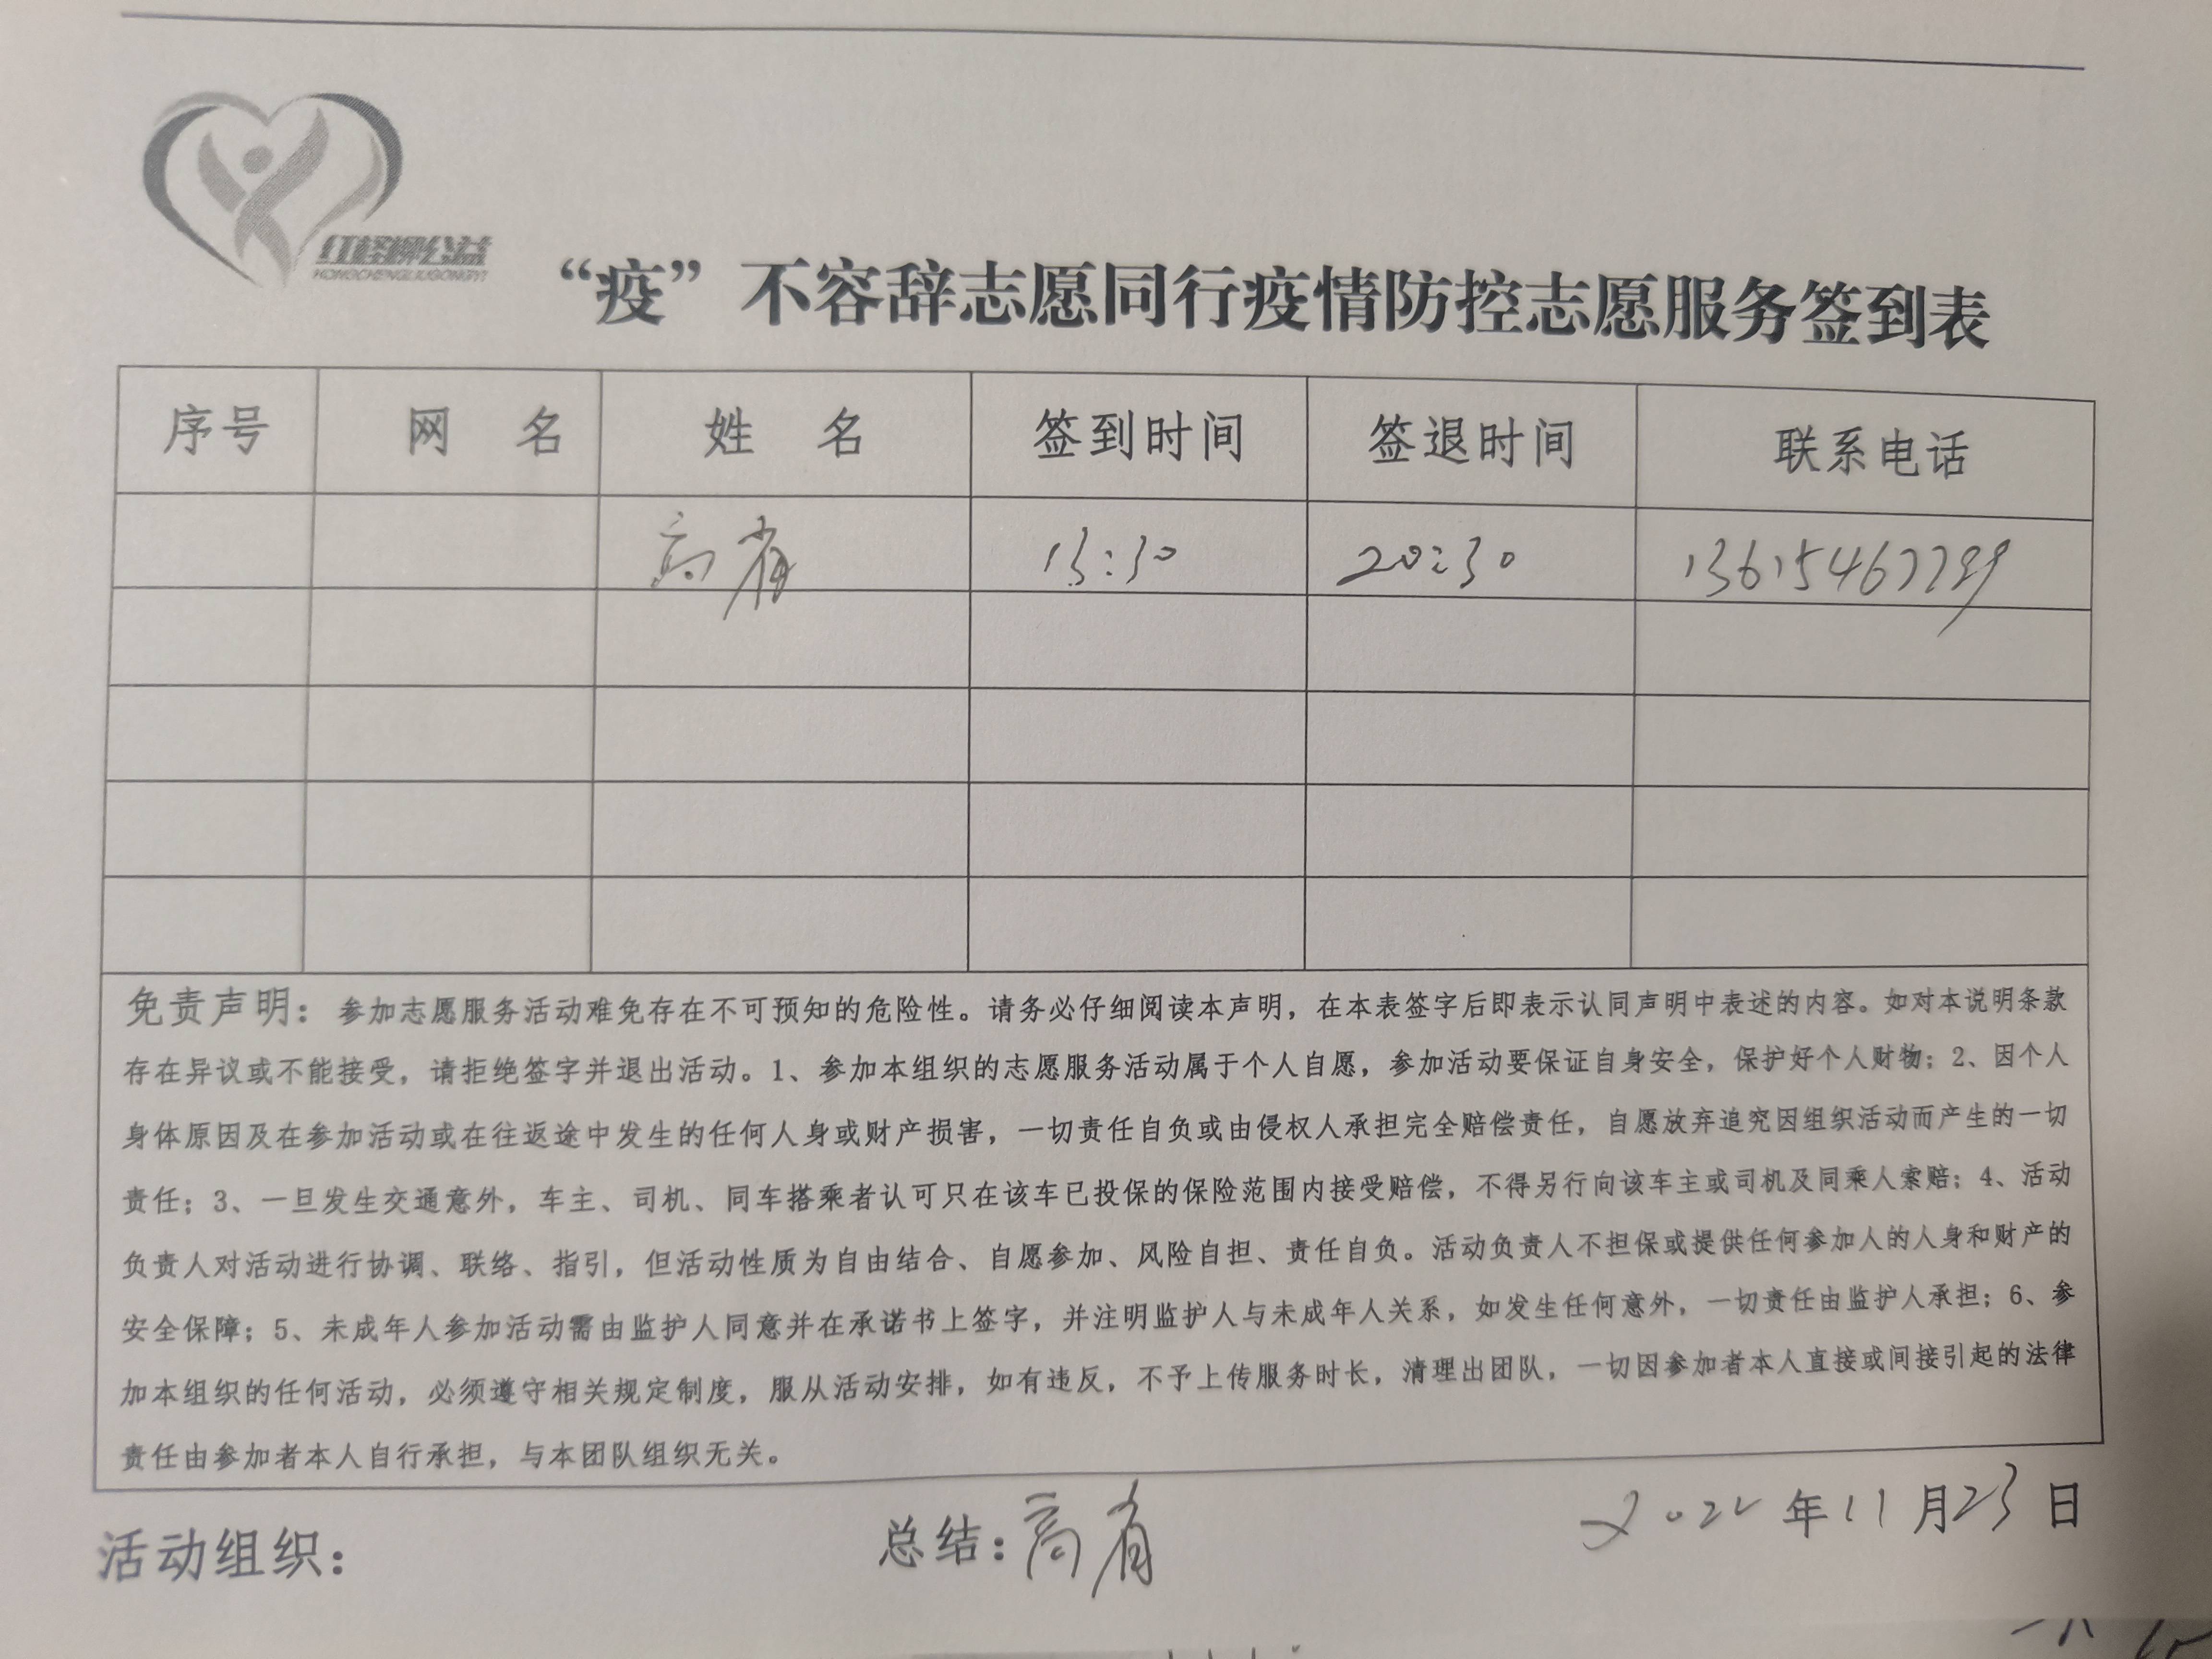 红柽柳公益
HONGCHENGLIUGONGYI
“疫”不容辞志愿同行疫情防控志愿服务签到表
序号 网 名 姓 名 签到时间 签退时间 联系电话
高省 13:30 20:30
免责声明：参加志愿服务活动难免存在不可预知的危险性。请务必仔细阅读本声明，在本表签字后即表示认同声明中表述的内容。如对本说明条款
存在异议或不能接受，请拒绝签字并退出活动。1、参加本组织的志愿服务活动属于个人自愿，参加活动要保证自身安全，保护好个人财物；2、因个人
身体原因及在参加活动或在往返途中发生的任何人身或财产损害，一切责任自负或由侵权人承担完全赔偿责任，自愿放弃追究因组织活动而产生的一切
责任；3、一旦发生交通意外，车主、司机、同车搭乘者认可只在该车已投保的保险范围内接受赔偿，不得另行向该车主或司机及同乘人索赔；4、活动
负责人对活动进行协调、联络、指引，但活动性质为自由结合、自愿参加、风险自担、责任自负。活动负责人不担保或提供任何参加人的人身和财产的
安全保障；5、未成年人参加活动需由监护人同意并在承诺书上签字，并注明监护人与未成年人关系，如发生任何意外，一切责任由监护人承担；6、参
加本组织的任何活动，必须遵守相关规定制度，服从活动安排，如有违反，不予上传服务时长，清理出团队，一切因参加者本人直接或间接引起的法律
责任由参加者本人自行承担，与本团队组织无关。
活动组织： 总结：高省 2022年11月23日